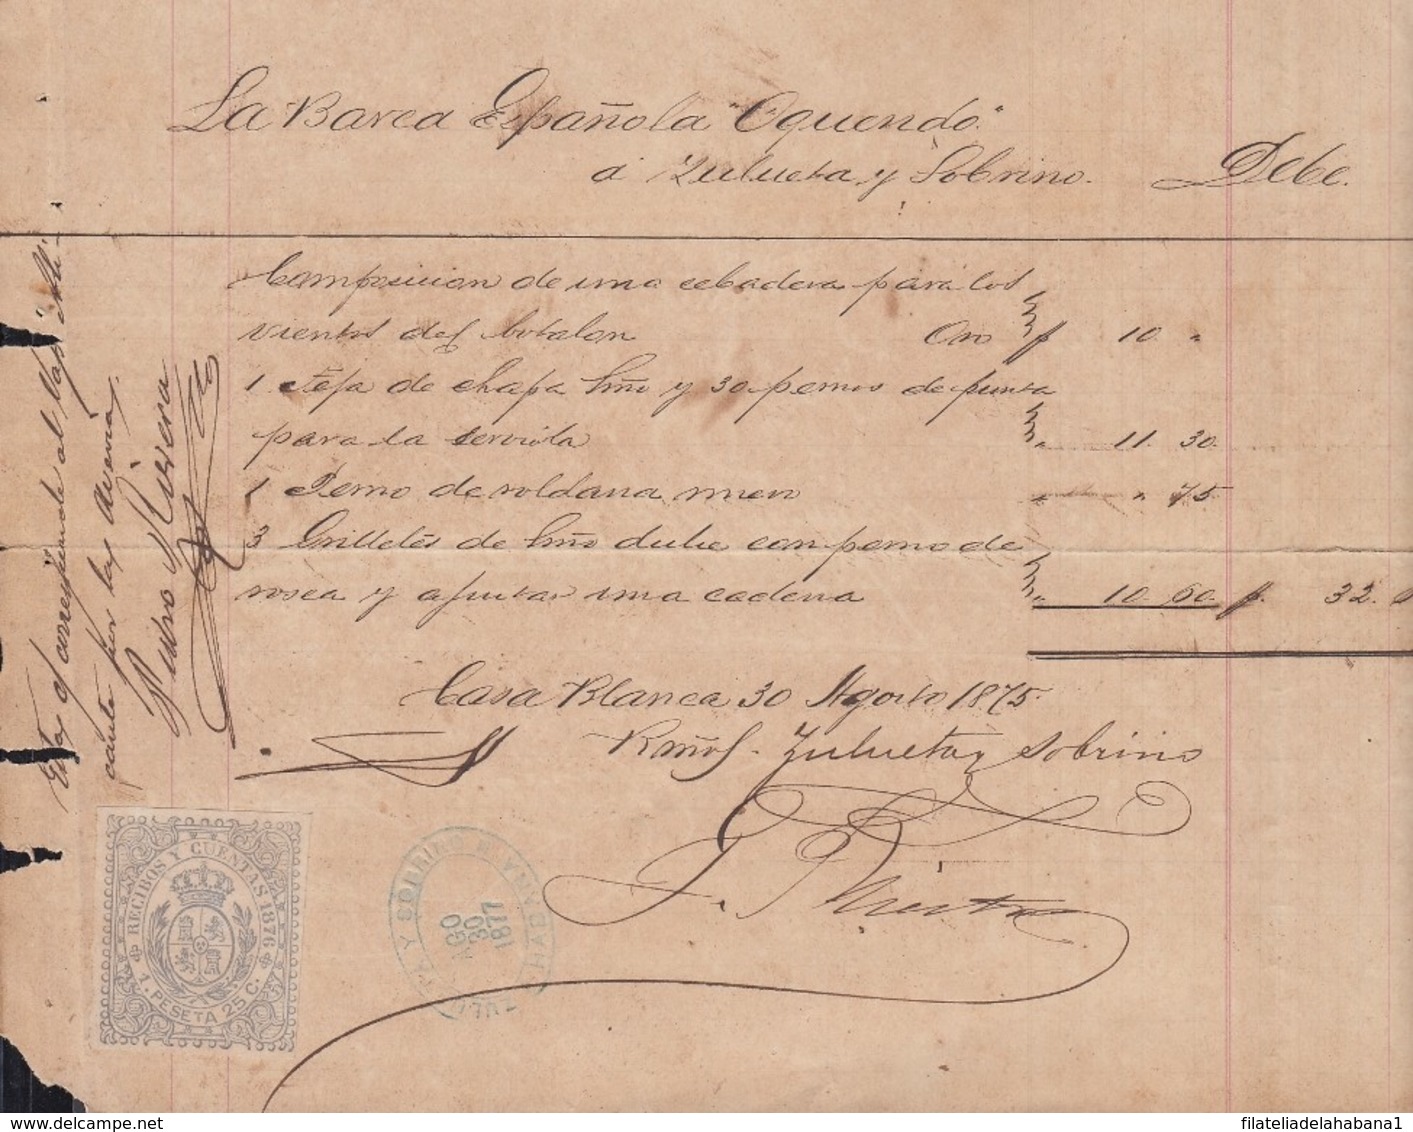 La Barca Española "Oquendo"
á Zulueta y Sobrino. Debe.
Composicion de una cebadera para los
vientos del botalon Oro $ 10 "
1 Tapa de chapa hrro y 30 pernos de punta
para la serviola " 11. 30
1 Perno de roldana " " 75
3 Grilletes de hrro dulce con perno de
rosca y ajustar una cadena " 10. 60 $ 32.
Casa Blanca 30 Agosto 1875.
Zulueta y Sobrino
Esta c/ corresponde al
por las Averia.
Pedro Rivera
RECIBOS Y CUENTAS 1876
1. PESETA 25 C.
ZULUETA Y SOBRINO HABANA
AGO
30
1877
delcampe.net
filateliadelahabana1